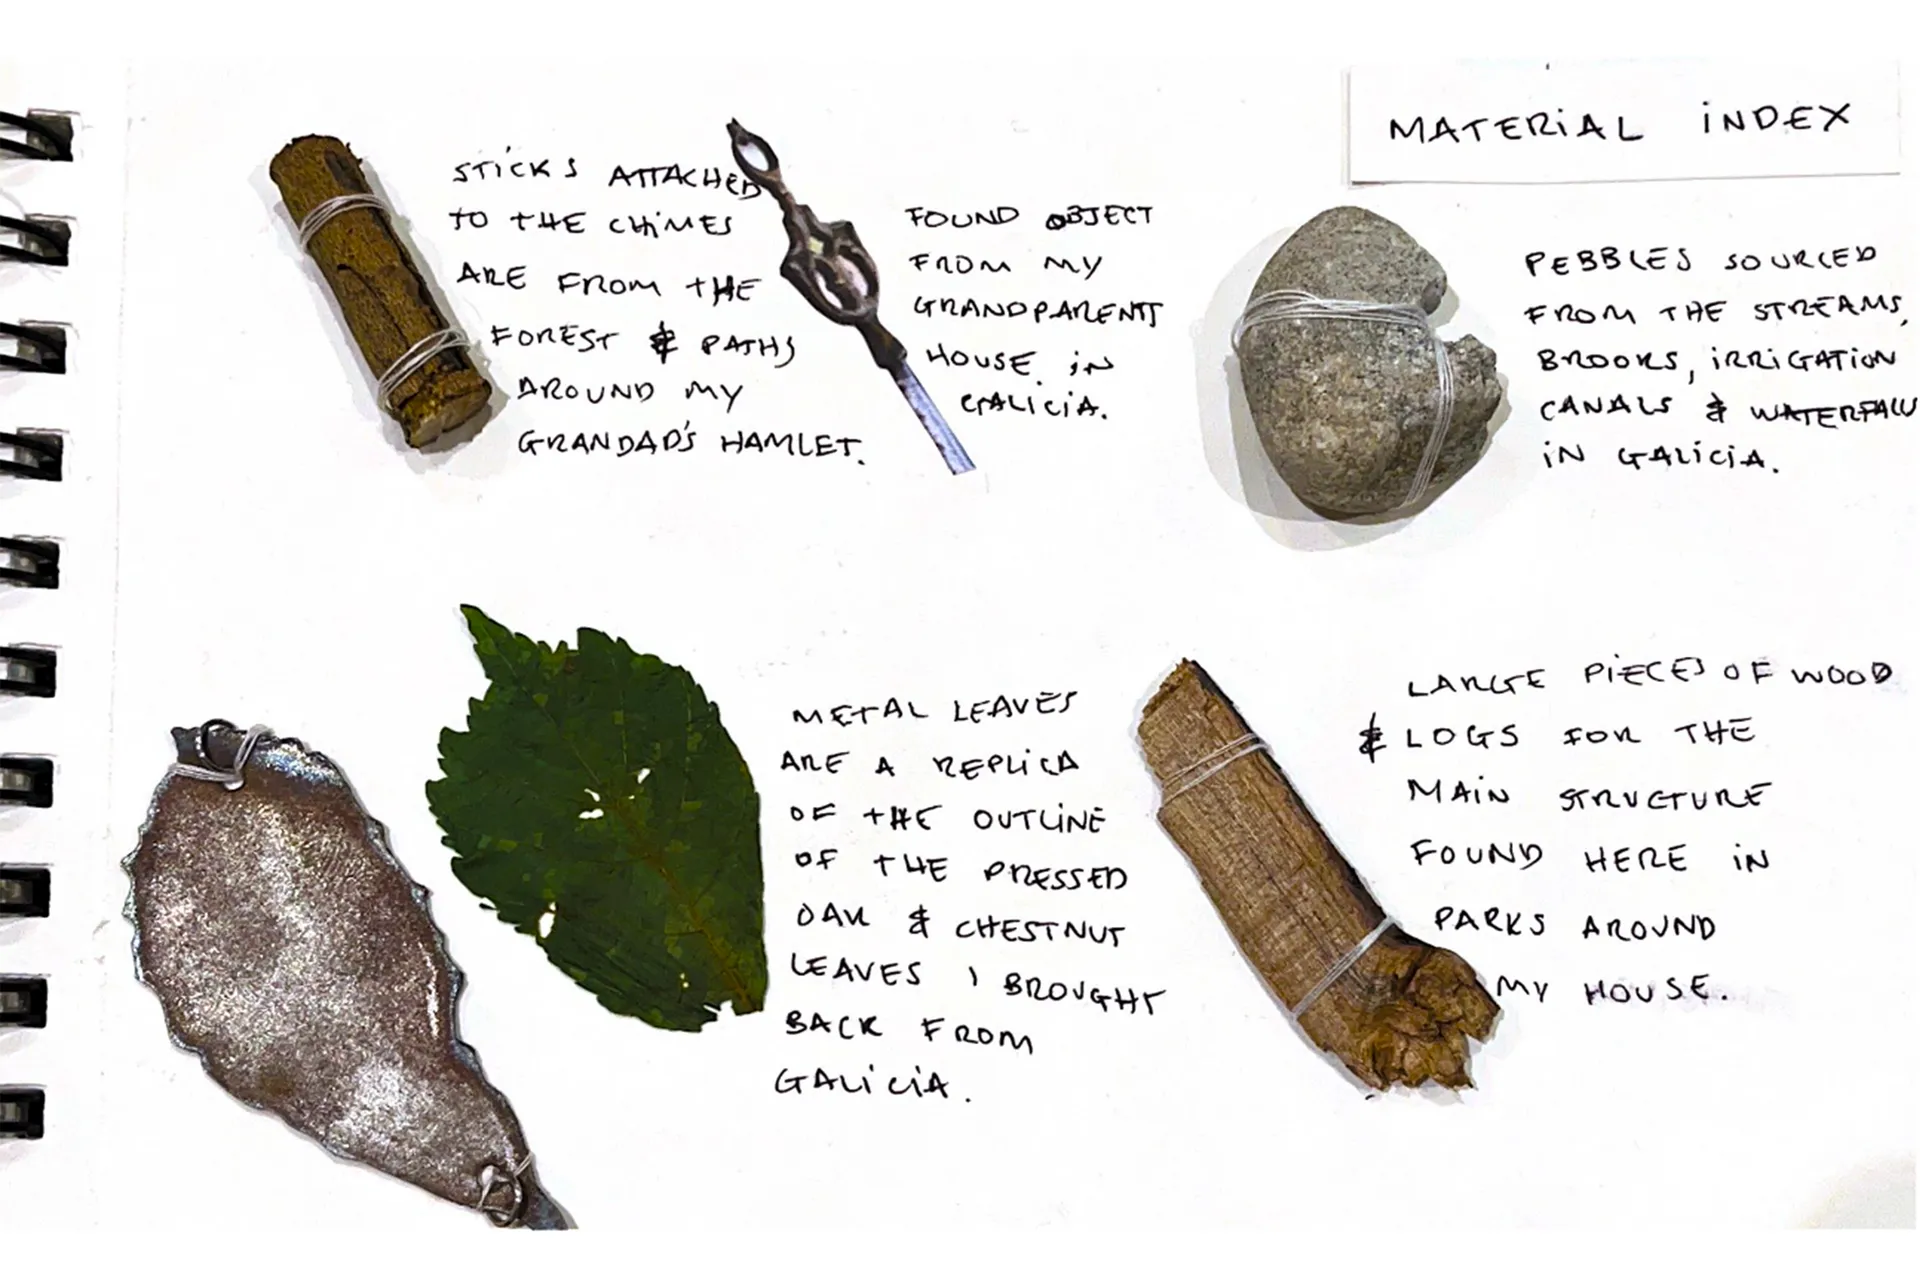 MATERIAL INDEX
STICKS ATTACHED
TO THE CHIMES
ARE FROM THE
FOREST & PATHS
AROUND MY
GRANDAD'S HAMLET.
FOUND OBJECT
FROM MY
GRANDPARENTS
HOUSE IN
GALICIA.
PEBBLES SOURCED
FROM THE STREAMS,
BROOKS, IRRIGATION
CANALS & WATERFALLS
IN GALICIA.
METAL LEAVES
ARE A REPLICA
OF THE OUTLINE
OF THE PRESSED
OAK & CHESTNUT
LEAVES I BROUGHT
BACK FROM
GALICIA.
LARGE PIECES OF WOOD
& LOGS FOR THE
MAIN STRUCTURE
FOUND HERE IN
PARKS AROUND
MY HOUSE.